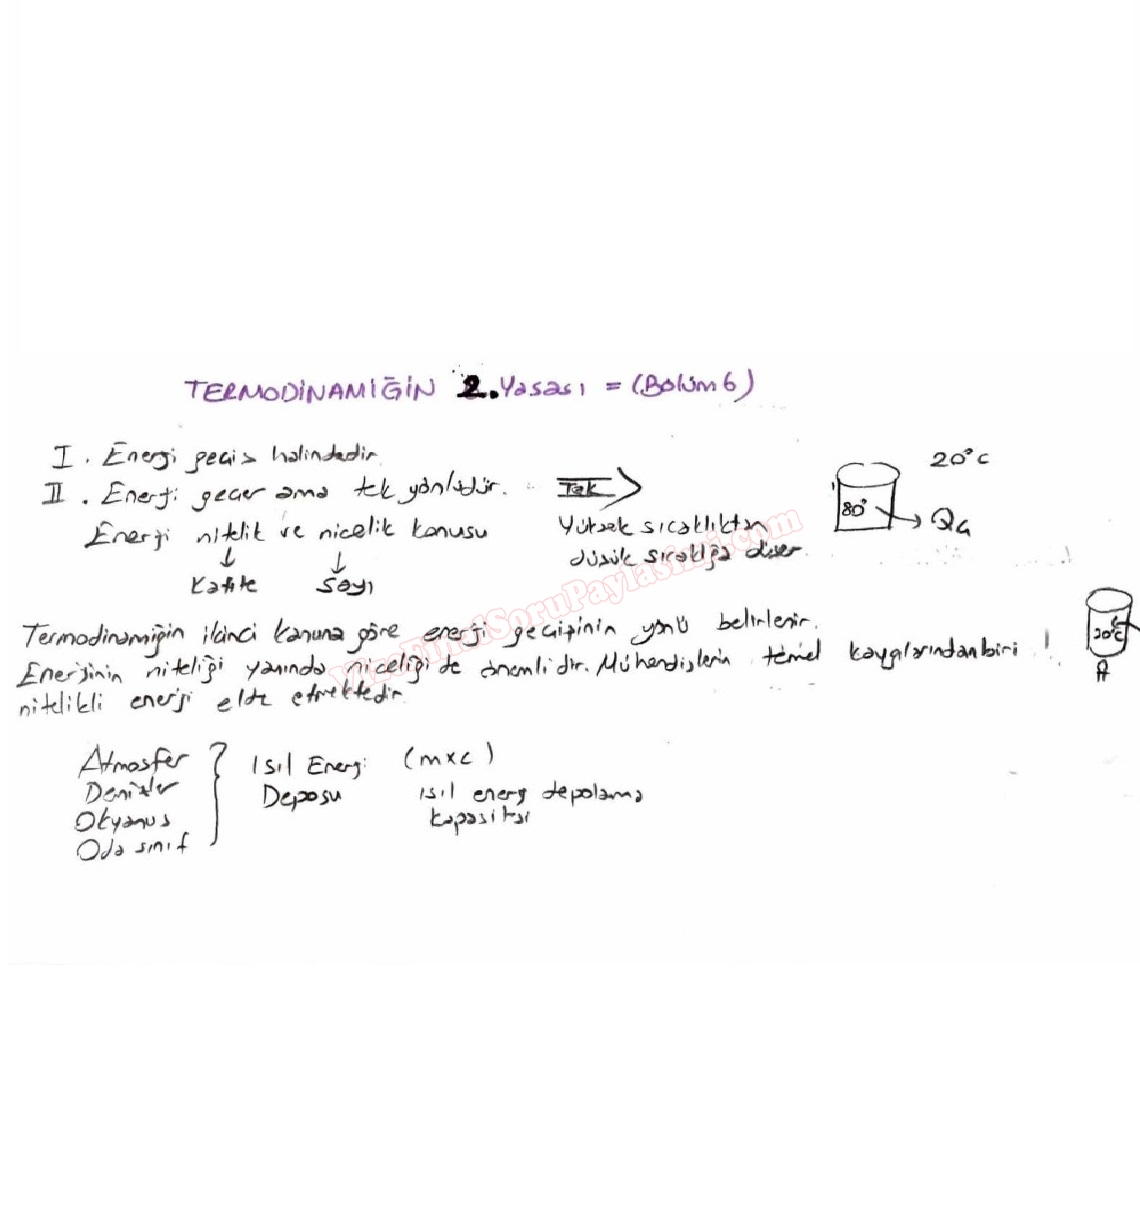 TERMODİNAMİĞİN 2. Yasası = (Bölüm 6)
I. Energi geçiş halindedir.
II. Enerji geçer ama tek yönlüdür. Tek
20°C
80°
Enerji nitelik ve nicelik konusu
Yüksek sıcaklıktan
Qç
düşük sıcaklığa düşer.
Kalite Sayı
VizeFinalSoruPaylasimi.com
Termodinamiğin ikinci kanuna göre enerji geçişinin yönü belirlenir.
20°C
Enerjinin niteliği yanında niceliği de önemlidir. Mühendislerin temel kaygılarından biri !
nitelikli enerji elde etmektedir.
Atmosfer
Isıl Energi (mxc)
Denizler
Deposu ısıl energ depolama
Okyanus
kapasitesi
Oda sınıf